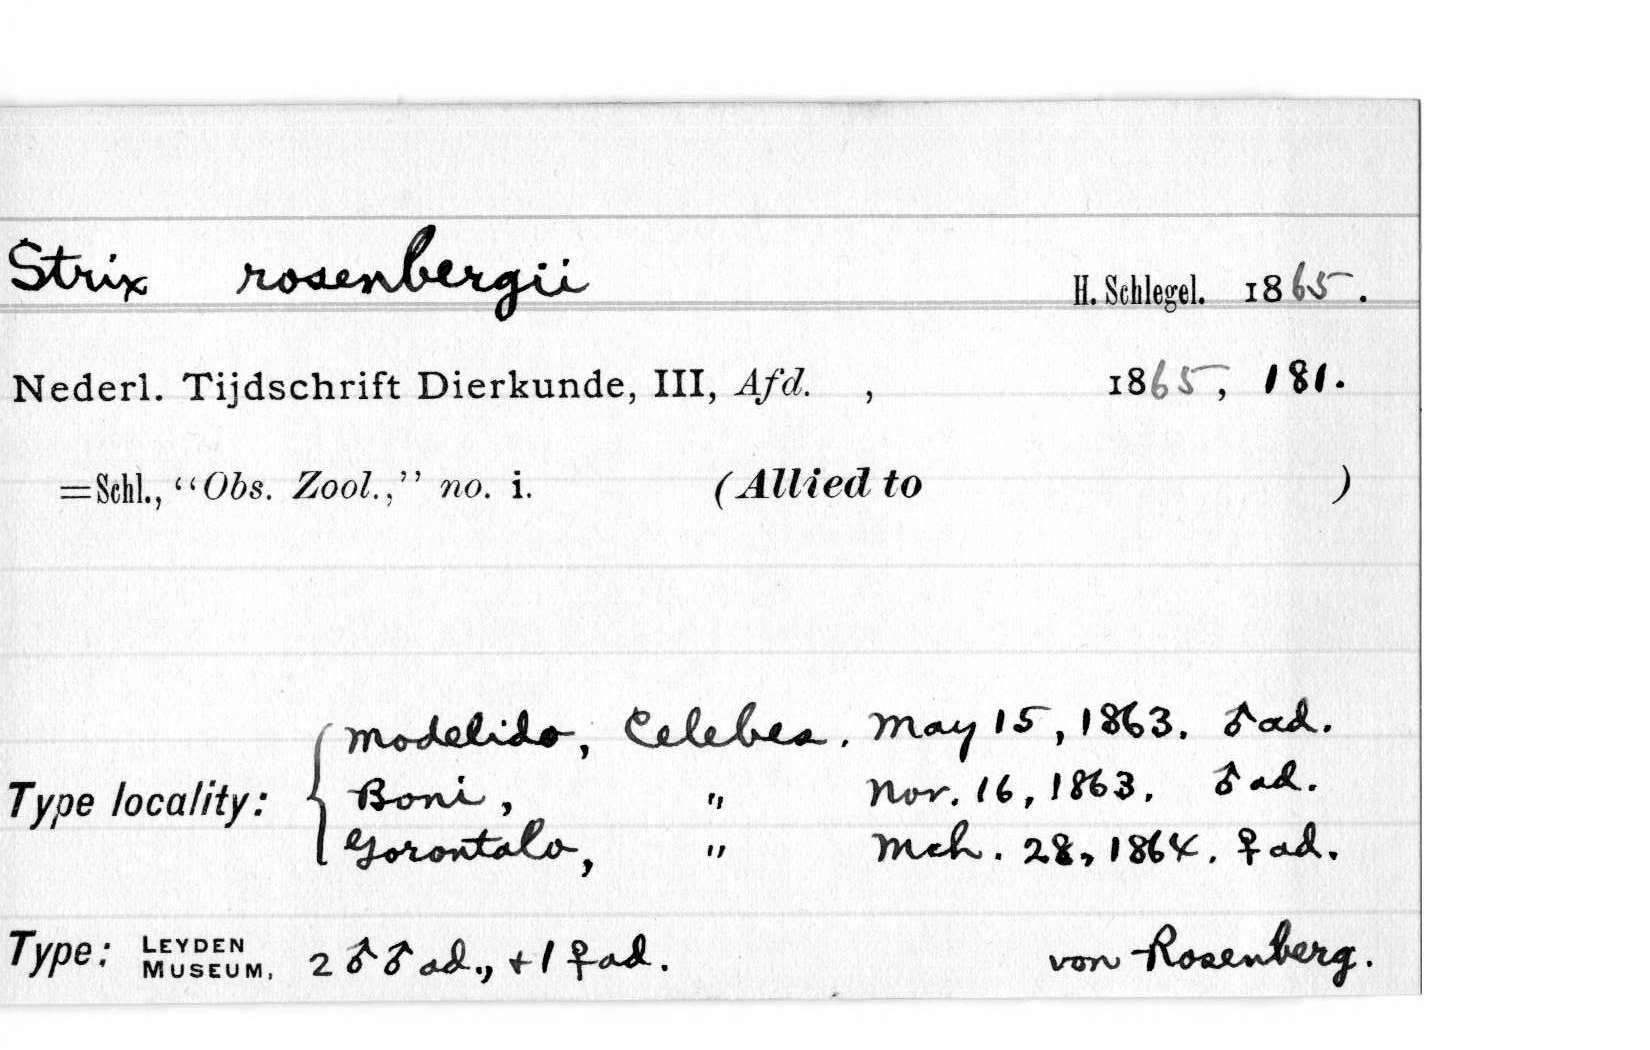 Strix rosenbergii H. Schlegel. 1865.
Nederl. Tijdschrift Dierkunde, III, Afd. , 1865, 181.
=Schl., “Obs. Zool.,” no. i. (Allied to )
Modelido, Celebes. May 15, 1863. ♂ad.
Type locality: { Boni, " Nov. 16, 1863. ♂ad.
Gorontalo, " Mch. 28, 1864. ♀ad.
Type: LEYDEN MUSEUM, 2 ♂♂ad., + 1 ♀ad. von Rosenberg.